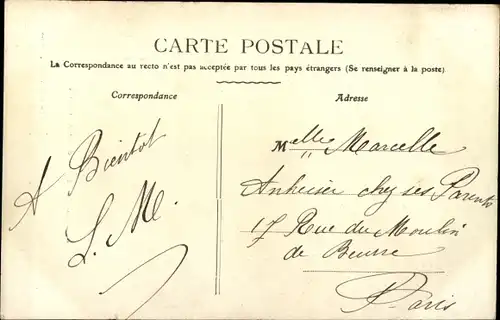 CARTE POSTALE
La Correspondance au recto n'est pas acceptée par tous les pays étrangers (Se renseigner à la poste)
Correspondance
Adresse
A Bientot
L. M.
Melle Marcelle
chez ses Parents
17 Rue du Moulin
de Beurre
Paris